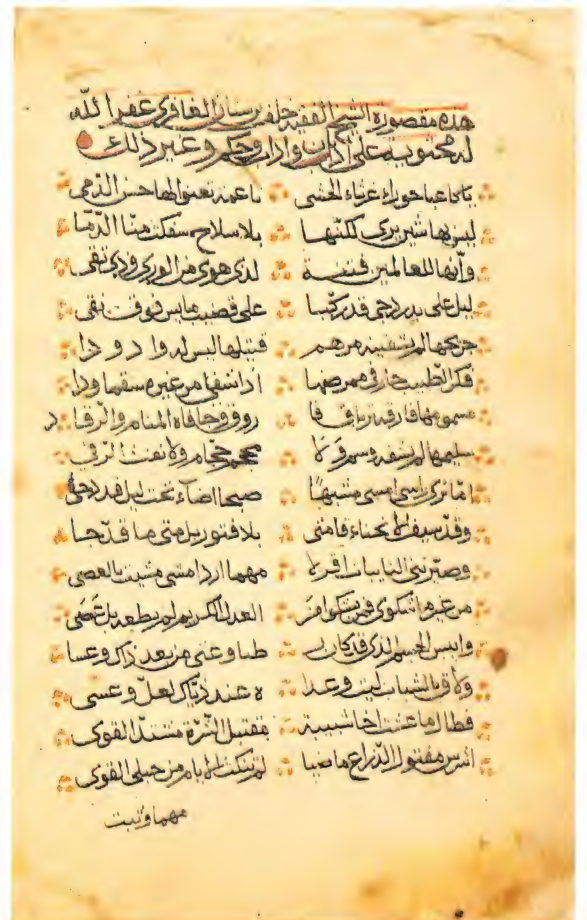 هذه مقصورة الشيخ الفقيه خلف بن سنان الغافري غفر الله
له محتوية على اداب وحكم وغير ذلك
يا كاعبا حوراء غرثاء الحشى ناعمة تعنو لها حسن الدمى
ليس بها شين يرى لكنها بلا سلاح سفكت منا الدما
وأنها للعالمين فتنة لدى هوى من الورى وذي تقى
ليل على بدر دجى قد ركبا على قضيب مايس فوق نقى
جريحها لم يشفينه مرهم قتيلها ليس له واد ودا
فكر الطبيب حار في ممرضها اذا شفا من غيره سقما ودا
سليمها لم يشفه محجم حجام ولا نفث الرقى
اما ترى راسي امسى مشبها صبحا اضاء تحت ليل قد دجى
وقد سيف الانحناء قامتي بلا فتور بل متى ما قد جا
وصيرتني النايبات اقزلا مهما اردا مشى مشيت بالعصى
من غيرها شكوى فمن يشكو العدل الكريم لم يطعه بل عصى
وايبس الجسم الذي قد كان طبا وعنى من بعد ذاك وعسا
عند ذياك لعل وعسى
فطال ما عشت اخا شبيبة مقتبل الشرة مشتد القوى
اشرس مفتول الذراع ماضيا لم تنكث الايام من حبلي القوى
مهما وثبت